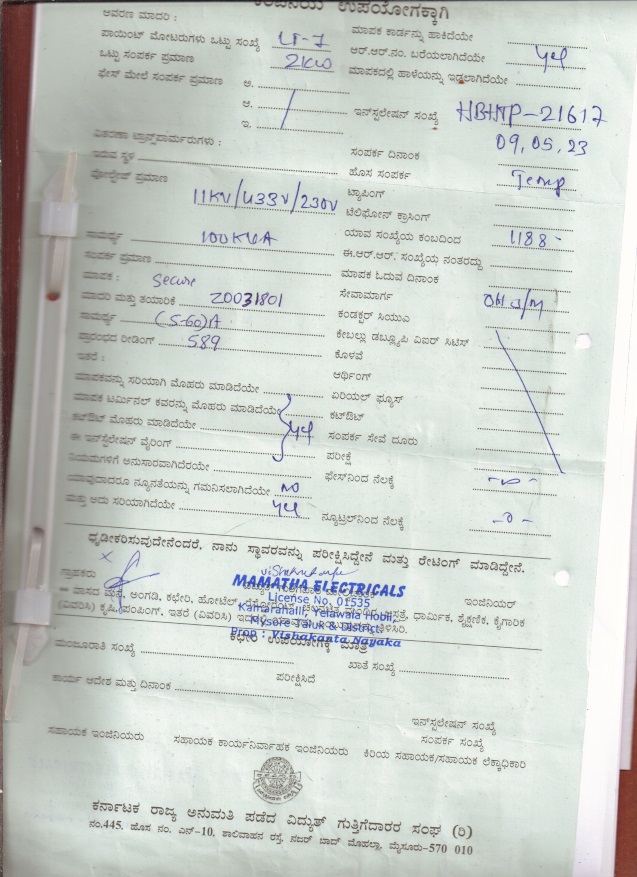 ಕಂಪನಿಯ ಉಪಯೋಗಕ್ಕಾಗಿ
ಆವರಣ ಮಾದರಿ :
ಮಾಪಕ ಕಾರ್ಡನ್ನು ಹಾಕಿದೆಯೇ
ಪಾಯಿಂಟ್ ಮೋಟರುಗಳು ಒಟ್ಟು ಸಂಖ್ಯೆ LT-1
ಆರ್.ಆರ್.ನಂ. ಬರೆಯಲಾಗಿದೆಯೇ yes
ಒಟ್ಟು ಸಂಪರ್ಕ ಪ್ರಮಾಣ 2KW
ಮಾಪಕದಲ್ಲಿ ಹಾಳೆಯನ್ನು ಇಡಲಾಗಿದೆಯೇ
ಫೇಸ್ ಮೇಲೆ ಸಂಪರ್ಕ ಪ್ರಮಾಣ ಅ.
ಆ.
ಇ.
ಇನ್‌ಸ್ಟಲೇಷನ್ ಸಂಖ್ಯೆ HBHTP-21617
ವಿತರಣಾ ಟ್ರಾನ್ಸ್‌ಫಾರ್ಮರುಗಳು :
ಸಂಪರ್ಕ ದಿನಾಂಕ 09.05.23
ಇರುವ ಸ್ಥಳ
ಹೊಸ ಸಂಪರ್ಕ Temp
ವೋಲ್ಟೇಜ್ ಪ್ರಮಾಣ 11KV/433V/230V
ಟ್ಯಾಪಿಂಗ್
ಟೆಲಿಫೋನ್ ಕ್ರಾಸಿಂಗ್
ಸಾಮರ್ಥ್ಯ 100KVA
ಯಾವ ಸಂಖ್ಯೆಯ ಕಂಬದಿಂದ 1188-
ಸಂಪರ್ಕ ಪ್ರಮಾಣ
ಈ.ಆರ್.ಆರ್. ಸಂಖ್ಯೆಯ ನಂತರದ್ದು
ಮಾಪಕ : Secure
ಮಾಪಕ ಓದುವ ದಿನಾಂಕ
ಮಾದರಿ ಮತ್ತು ತಯಾರಿಕೆ 20031801
ಸೇವಾಮಾರ್ಗ
ಸಾಮರ್ಥ್ಯ (5-60)A
ಕಂಡಕ್ಟರ್ ಸಿಯುಎ
ಪ್ರಾರಂಭದ ರೀಡಿಂಗ್ 589
ಕೇಬಲ್ಲು ಡಬ್ಲ್ಯೂಪಿ ವಿಐರ್ ಸಿಟಿಸ್
ಇತರೆ :
ಕೊಳವೆ
ಆರ್ಥಿಂಗ್
ಮಾಪಕವನ್ನು ಸರಿಯಾಗಿ ಮೊಹರು ಮಾಡಿದೆಯೇ
ಏರಿಯಲ್ ಫ್ಯೂಸ್
ಮಾಪಕ ಟರ್ಮಿನಲ್ ಕವರನ್ನು ಮೊಹರು ಮಾಡಿದೆಯೇ
ಕಟ್‌ಔಟ್
ಕಟ್‌ಔಟ್ ಮೊಹರು ಮಾಡಿದೆಯೇ yes
ಸಂಪರ್ಕ ಸೇವೆ ದೂರು
ಈ ಇನ್‌ಸ್ಟಲೇಷನ್ ವೈರಿಂಗ್
ಪರೀಕ್ಷೆ
ನಿಯಮಗಳಿಗೆ ಅನುಸಾರವಾಗಿದೆರಯೇ
ಫೇಸ್‌ನಿಂದ ನೆಲಕ್ಕೆ
ಯಾವುದಾದರೂ ನ್ಯೂನತೆಯನ್ನು ಗಮನಿಸಲಾಗಿದೆಯೇ NO
ಮತ್ತು ಅದು ಸರಿಯಾಗಿದೆಯೇ yes
ನ್ಯೂಟ್ರಲ್‌ನಿಂದ ನೆಲಕ್ಕೆ -0-
ಧೃಡೀಕರಿಸುವುದೇನೆಂದರೆ, ನಾನು ಸ್ಥಾವರವನ್ನು ಪರೀಕ್ಷಿಸಿದ್ದೇನೆ ಮತ್ತು ರೇಟಿಂಗ್ ಮಾಡಿದ್ದೇನೆ.
ಗ್ರಾಹಕರು
ಇಂಜಿನಿಯರ್
MAMATHA ELECTRICALS
License No. 01535
Kamaramalli, Yelawala Hobli,
Mysore Taluk & District.
Prop : Vishakanta Nayaka
** ವಾಸದ ಮನೆ, ಅಂಗಡಿ, ಕಛೇರಿ, ಹೋಟೆಲ್, ಧಾರ್ಮಿಕ, ಶೈಕ್ಷಣಿಕ, ಕೈಗಾರಿಕ
(ವಿವರಿಸಿ) ಕೃಷಿ,ಪಂಪಿಂಗ್, ಇತರೆ (ವಿವರಿಸಿ) ತಿಳಿಸಿರಿ.
ಕಛೇರಿ ಉಪಯೋಗಕ್ಕೆ ಮಾತ್ರ
ಮಂಜೂರಾತಿ ಸಂಖ್ಯೆ
ಖಾತೆ ಸಂಖ್ಯೆ
ಪರೀಕ್ಷಿಸಿದೆ
ಕಾರ್ಯ ಆದೇಶ ಮತ್ತು ದಿನಾಂಕ
ಇನ್‌ಸ್ಟಲೇಷನ್ ಸಂಖ್ಯೆ
ಸಂಪರ್ಕ ಸಂಖ್ಯೆ
ಸಹಾಯಕ ಇಂಜಿನಿಯರು ಸಹಾಯಕ ಕಾರ್ಯನಿರ್ವಾಹಕ ಇಂಜಿನಿಯರು ಕಿರಿಯ ಸಹಾಯಕ/ಸಹಾಯಕ ಲೆಕ್ಕಾಧಿಕಾರಿ
ಕರ್ನಾಟಕ ರಾಜ್ಯ ಅನುಮತಿ ಪಡೆದ ವಿದ್ಯುತ್ ಗುತ್ತಿಗೆದಾರರ ಸಂಘ (ರಿ)
ನಂ.445. ಹೊಸ ನಂ. ಎನ್-10, ಶಾಲಿವಾಹನ ರಸ್ತೆ, ನಜರ್ ಬಾದ್ ಮೊಹಲ್ಲಾ, ಮೈಸೂರು-570 010